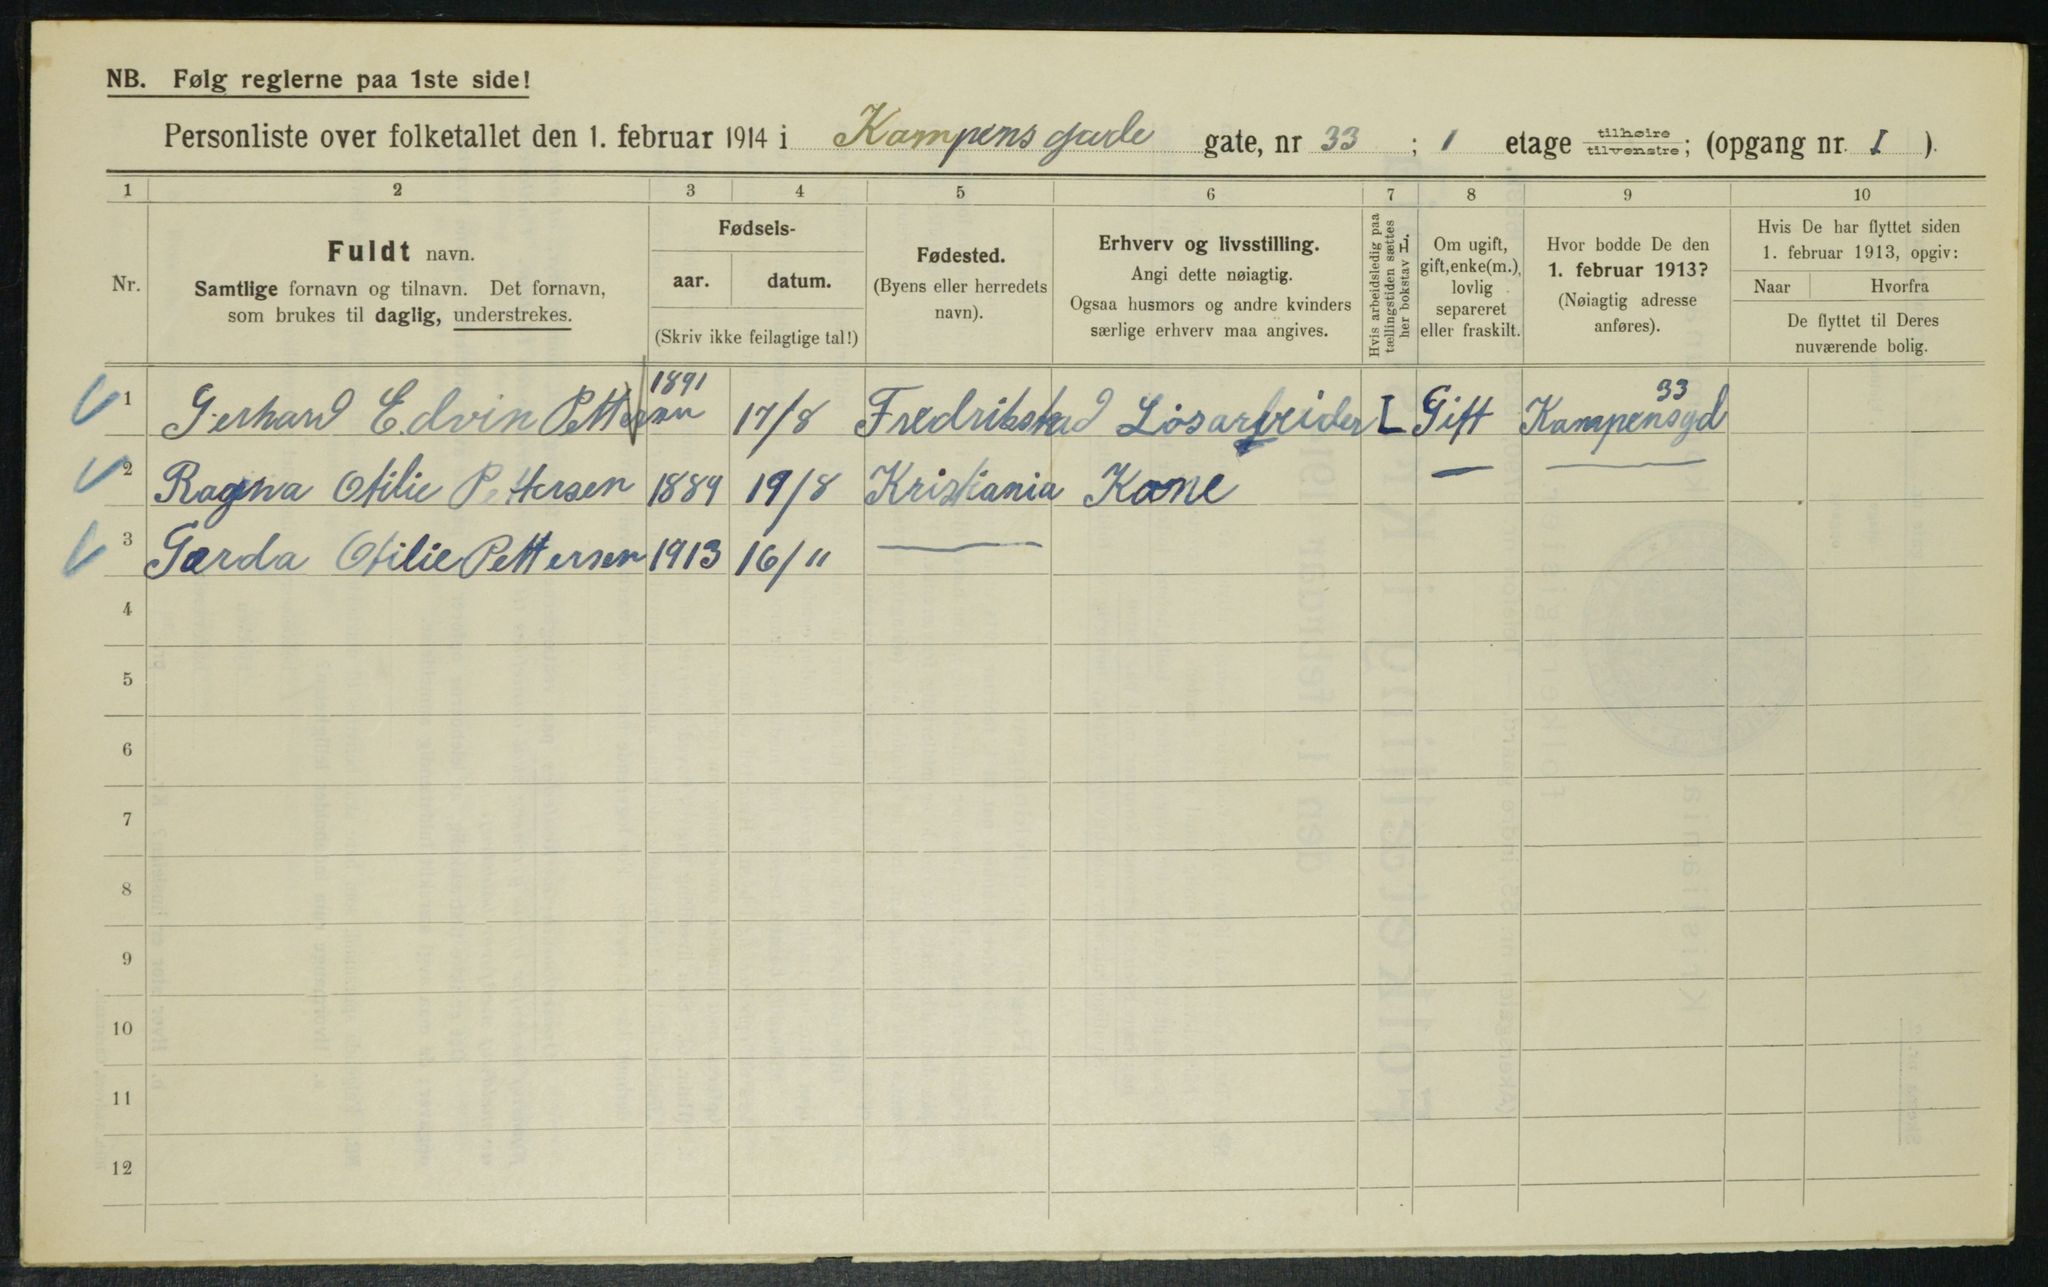 NB. Følg reglerne paa 1ste side!
Personliste over folketallet den 1. februar 1914 i Kampens gade gate, nr 33 ; 1 etage tilhøire tilvenstre; (opgang nr. I ).
1 2 3 4 5 6 7 8 9 10
Nr.
Fuldt navn.
Samtlige fornavn og tilnavn. Det fornavn,
som brukes til daglig, understrekes.
Fødsels-
aar. datum.
(Skriv ikke feilagtige tal!)
Fødested.
(Byens eller herredets
navn).
Erhverv og livsstilling.
Angi dette nøiagtig.
Ogsaa husmors og andre kvinders
særlige erhverv maa angives.
Hvis arbeidsledig paa
tællingstiden sættes
her bokstav L.
Om ugift,
gift, enke(m.),
lovlig
separeret
eller fraskilt.
Hvor bodde De den
1. februar 1913?
(Nøiagtig adresse
anføres).
Hvis De har flyttet siden
1. februar 1913, opgiv:
Naar Hvorfra
De flyttet til Deres
nuværende bolig.
1 Gerhard Edvin Pettersen 1891 17/8 Fredrikstad Løsarbeider L Gift Kampensgd 33
2 Ragna Otilie Pettersen 1889 19/8 Kristiania Kone —
3 Gærda Otilie Pettersen 1913 16/11 —
4
5
6
7
8
9
10
11
12